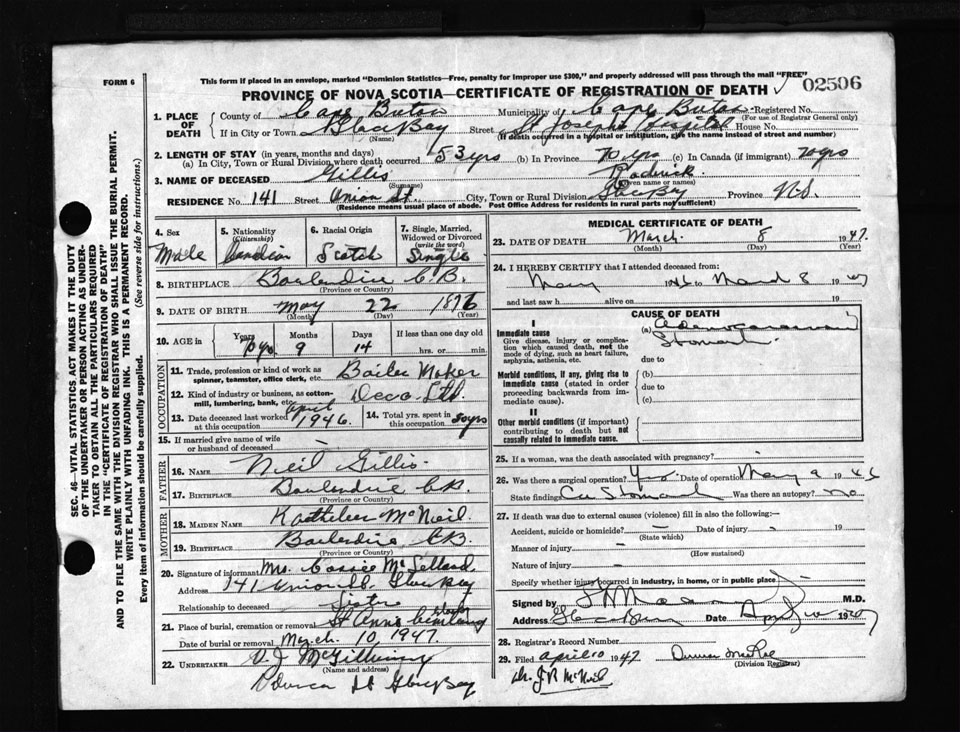 FORM 6
This form if placed in an envelope, marked "Dominion Statistics—Free, penalty for improper use $300," and properly addressed will pass through the mail "FREE"
PROVINCE OF NOVA SCOTIA—CERTIFICATE OF REGISTRATION OF DEATH 02506
SEC. 46—VITAL STATISTICS ACT MAKES IT THE DUTY OF THE UNDERTAKER OR PERSON ACTING AS UNDERTAKER TO OBTAIN ALL THE PARTICULARS REQUIRED IN THE "CERTIFICATE OF REGISTRATION OF DEATH" AND TO FILE THE SAME WITH THE DIVISION REGISTRAR WHO SHALL ISSUE THE BURIAL PERMIT.
WRITE PLAINLY WITH UNFADING INK. THIS IS A PERMANENT RECORD.
Every item of information should be carefully supplied. (See reverse side for instructions.)
1. PLACE OF DEATH County of Cape Breton Municipality of Cape Breton Registered No.
(For use of Registrar General only)
If in City or Town Glace Bay Street St Josephs Hospital House No.
(Name) (If death occurred in a hospital or institution, give the name instead of street and number)
2. LENGTH OF STAY (in years, months and days)
(a) In City, Town or Rural Division where death occurred 53 yrs (b) In Province 70 yrs (c) In Canada (if immigrant) 70 yrs
3. NAME OF DECEASED Gillis Roderick
(Surname) (Given name or names)
RESIDENCE No. 141 Street Union St. City, Town or Rural Division Glace Bay Province N.S.
(Residence means usual place of abode. Post Office Address for residents in rural parts not sufficient)
4. Sex Male
5. Nationality (Citizenship) Canadian
6. Racial Origin Scotch
7. Single, Married, Widowed or Divorced (write the word) Single
8. BIRTHPLACE C.B.
(Province or Country)
9. DATE OF BIRTH May 22 1876
(Month) (Day) (Year)
10. AGE in Years 70 yrs Months 9 Days 14 If less than one day old
hrs. or min.
OCCUPATION
11. Trade, profession or kind of work as spinner, teamster, office clerk, etc. Boiler Maker
12. Kind of industry or business, as cotton-mill, lumbering, bank, etc. Ltd.
13. Date deceased last worked at this occupation April 1946.
14. Total yrs. spent in this occupation 50 yrs
15. If married give name of wife or husband of deceased –
FATHER
16. NAME Neil Gillis
17. BIRTHPLACE C.B.
(Province or Country)
MOTHER
18. MAIDEN NAME McNeil
19. BIRTHPLACE C.B.
(Province or Country)
20. Signature of informant Mrs. Cassie
Address 141 Union St. Glace Bay
Relationship to deceased Sister
21. Place of burial, cremation or removal St Anns Cemetery
Date of burial or removal March 10, 1947.
22. UNDERTAKER V. J. McGillivray
(Name and address)
St Glace Bay
MEDICAL CERTIFICATE OF DEATH
23. DATE OF DEATH March 8 1947.
(Month) (Day) (Year)
24. I HEREBY CERTIFY that I attended deceased from:
May 1946 to March 8 1947
and last saw h alive on 19
CAUSE OF DEATH
I
Immediate cause (a)
Give disease, injury or complication which caused death, not the mode of dying, such as heart failure, asphyxia, asthenia, etc.
Stomach
due to
Morbid conditions, if any, giving rise to immediate cause (stated in order proceeding backwards from immediate cause).
(b)
due to
(c)
II
Other morbid conditions (if important) contributing to death but not causally related to immediate cause.
25. If a woman, was the death associated with pregnancy? –
26. Was there a surgical operation? Yes Date of operation May 9 1946
State findings Ca Stomach Was there an autopsy? no
27. If death was due to external causes (violence) fill in also the following:—
Accident, suicide or homicide? – Date of injury – 19
(State which)
Manner of injury –
(How sustained)
Nature of injury –
Specify whether injury occurred in industry, in home, or in public place
Signed by M.D.
Address Glace Bay Date April 10 1947
28. Registrar's Record Number
29. Filed April 10 1947
(Division Registrar)
McNeil